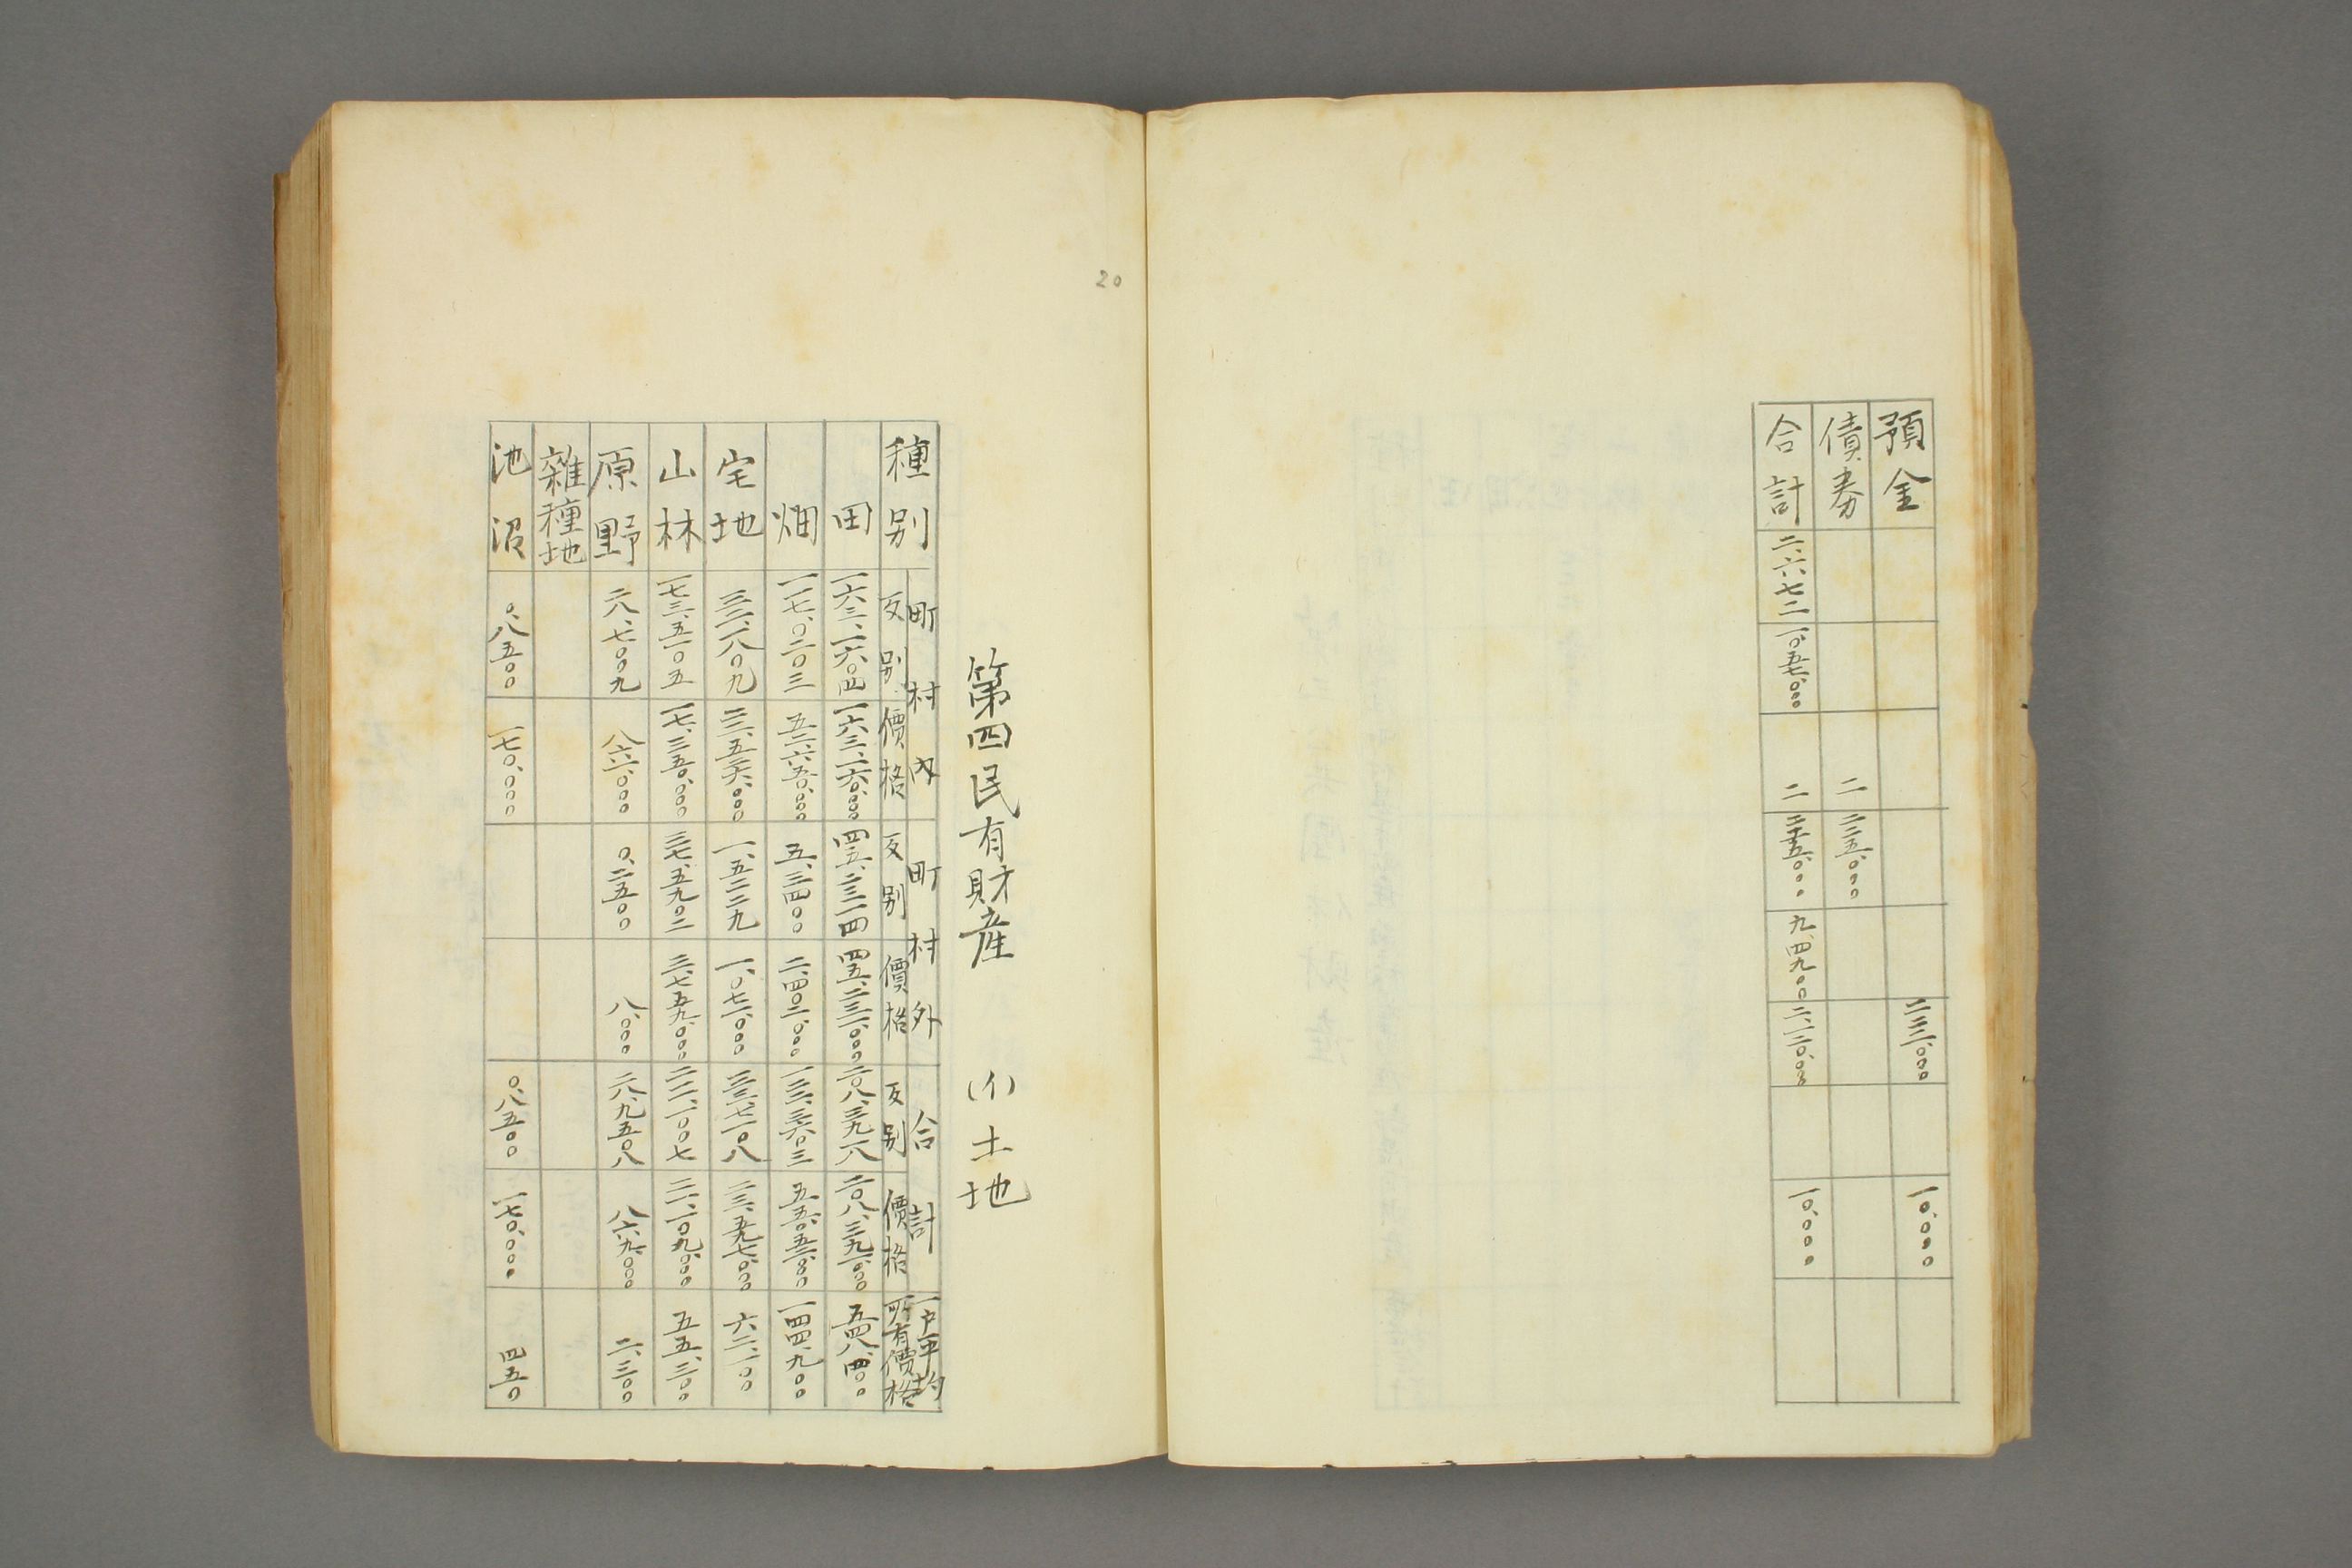 預金 二三一.〇〇〇 一〇.〇〇〇
債券 二 二三五.〇〇〇
合計 二、六七二 二 九、四九〇〇 一〇.〇〇〇
20
第四民有財産 (イ)土地
町村内 町村外 合計 一戸平均
種別 反別 價格 反別 價格 反別 價格 所有價格
田 一六三、一六〇四 一六三、一六〇.〇〇〇 四五、二三一四 四五、二三一.〇〇〇 二〇八、三九一八 二〇八、三九一.〇〇〇 五四八、四〇〇
畑 一一七、〇二〇三 五二、六五〇.〇〇〇 五、三四〇〇 二、四〇三.〇〇〇 一二二、三六〇三 五五、〇五三.〇〇〇 一四四、九〇〇
宅地 三二、一八〇九 二二、五二六.〇〇〇 一、五二二九 一、〇七一.〇〇〇 三三、七一〇八 二三、五九七.〇〇〇 六二、一〇〇
山林 一七三、五一〇五 一七、三五〇.〇〇〇 三七、五九〇二 三、七五九.〇〇〇 二一一、一〇〇七 二一、一〇九.〇〇〇 五五、三〇〇
原野 二八、七〇〇九 八六一.〇〇〇 〇、二五〇〇 八.〇〇〇 二八、九五〇八 八六九.〇〇〇 二、三〇〇
雜種地
池沼 〇、八五〇〇 一七〇.〇〇〇 〇、八五〇〇 一七〇.〇〇〇 四五〇